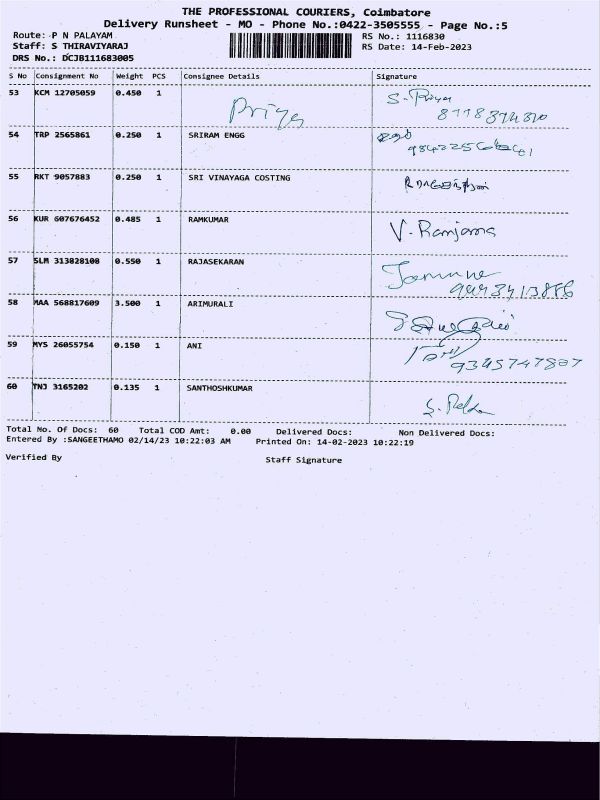 THE PROFESSIONAL COURIERS, Coimbatore
Delivery Runsheet - MO - Phone No.:0422-3505555 - Page No.:5
Route: P N PALAYAM RS No.: 1116830
Staff: S THIRAVIYARAJ RS Date: 14-Feb-2023
DRS No.: DCJB111683005
S No Consignment No Weight PCS Consignee Details Signature
53 KCM 12705059 0.450 1 Priya S. Priya
54 TRP 2565861 0.250 1 SRIRAM ENGG
55 RKT 9057883 0.250 1 SRI VINAYAGA COSTING
56 KUR 607676452 0.485 1 RAMKUMAR
57 SLM 313828108 0.550 1 RAJASEKARAN
58 MAA 568817609 3.500 1 ARIMURALI
59 MYS 26055754 0.150 1 ANI
9345747807
60 TNJ 3165202 0.135 1 SANTHOSHKUMAR
Total No. Of Docs: 60 Total COD Amt: 0.00 Delivered Docs: Non Delivered Docs:
Entered By :SANGEETHAMO 02/14/23 10:22:03 AM Printed On: 14-02-2023 10:22:19
Verified By Staff Signature